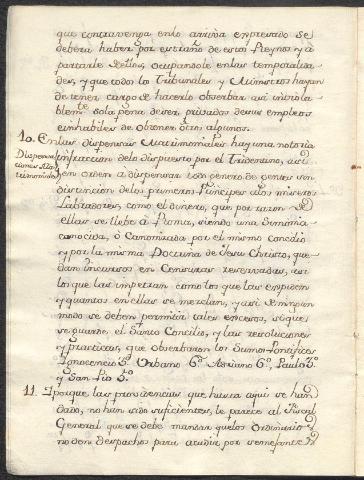 que contravenga en lo arriva expresado se
debera haber por estraño de estos Reynos y a
partarle de ellos, ocupandole en las temporalida
des, y que todos los Tribunales y Ministros hayan
de tener cargo de hacerlo obserbar asi inviola
blemte sola pena de ser privados de sus empleos
e inhabiles de obtener otros algunos.
10. En las dispensas Matrimoniales hay una notoria
Dispensa
ciones Ma
trimoniales
infraccion de lo dispuesto por el Tridentino, asi
en orden a dispensar con genero de gentes sin
distincion de los primeros Principes a los miseros
Labradores, como el dinero, que por razon de
ellas se llebe à Roma, siendo una Simonia
conocida, ó Canonizada por el mismo Concilio
y por la misma Doctrina de Jesu Christo, que
dan incursos en Censuras reservadas, asi
los que las impetran como los que las expiden
y quantos en ellas se mezclan, y asi de ningun
modo se deben permitir tales excesos, si que
se guarde, el Santo Concilio, y las resoluciones
y practicas, que obserbaron los Sumos Pontifices
Innocencio 8º Urbano 6º Adriano 6º, Paulo 3º
y San Pio 5º
11. Y porque las providencias que hasta aqui se han
dado, no han sido suficientes, le parece al Fiscal
General que se debe mandar que los Ordinarios
no den despachos para acudir por semejantes